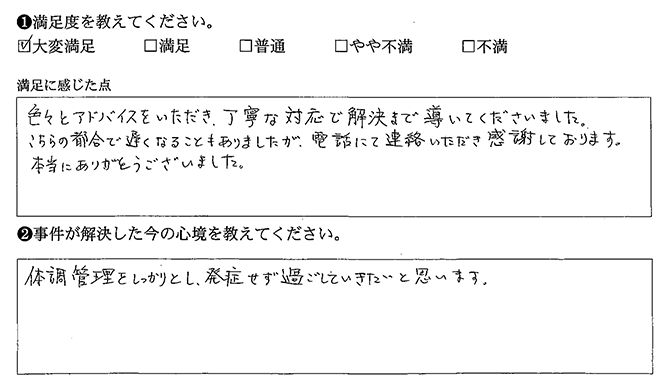 ❶満足度を教えてください。
☑大変満足 □満足 □普通 □やや不満 □不満
満足に感じた点
色々とアドバイスをいただき、丁寧な対応で解決まで導いてくださいました。
こちらの都合で遅くなることもありましたが、電話にて連絡いただき感謝しております。
本当にありがとうございました。
❷事件が解決した今の心境を教えてください。
体調管理をしっかりとし、発症せず過ごしていきたいと思います。